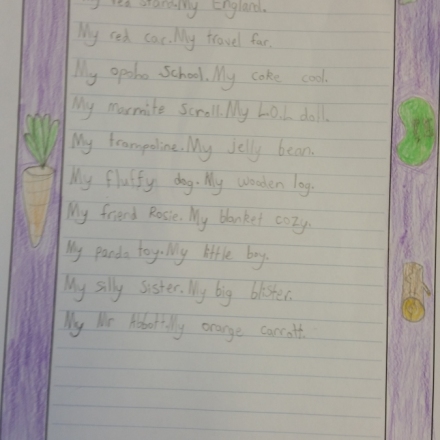 My red stand.My England.
My red car.My travel far.
My opoho School.My cake cool.
My marmite scroll.My L.O.L doll.
My trampoline.My jelly bean.
My fluffy dog.My wooden log.
My friend Rosie.My blanket cozy.
My panda toy.My little boy.
My silly sister.My big blister.
My Mr Abbott.My orange carrott.